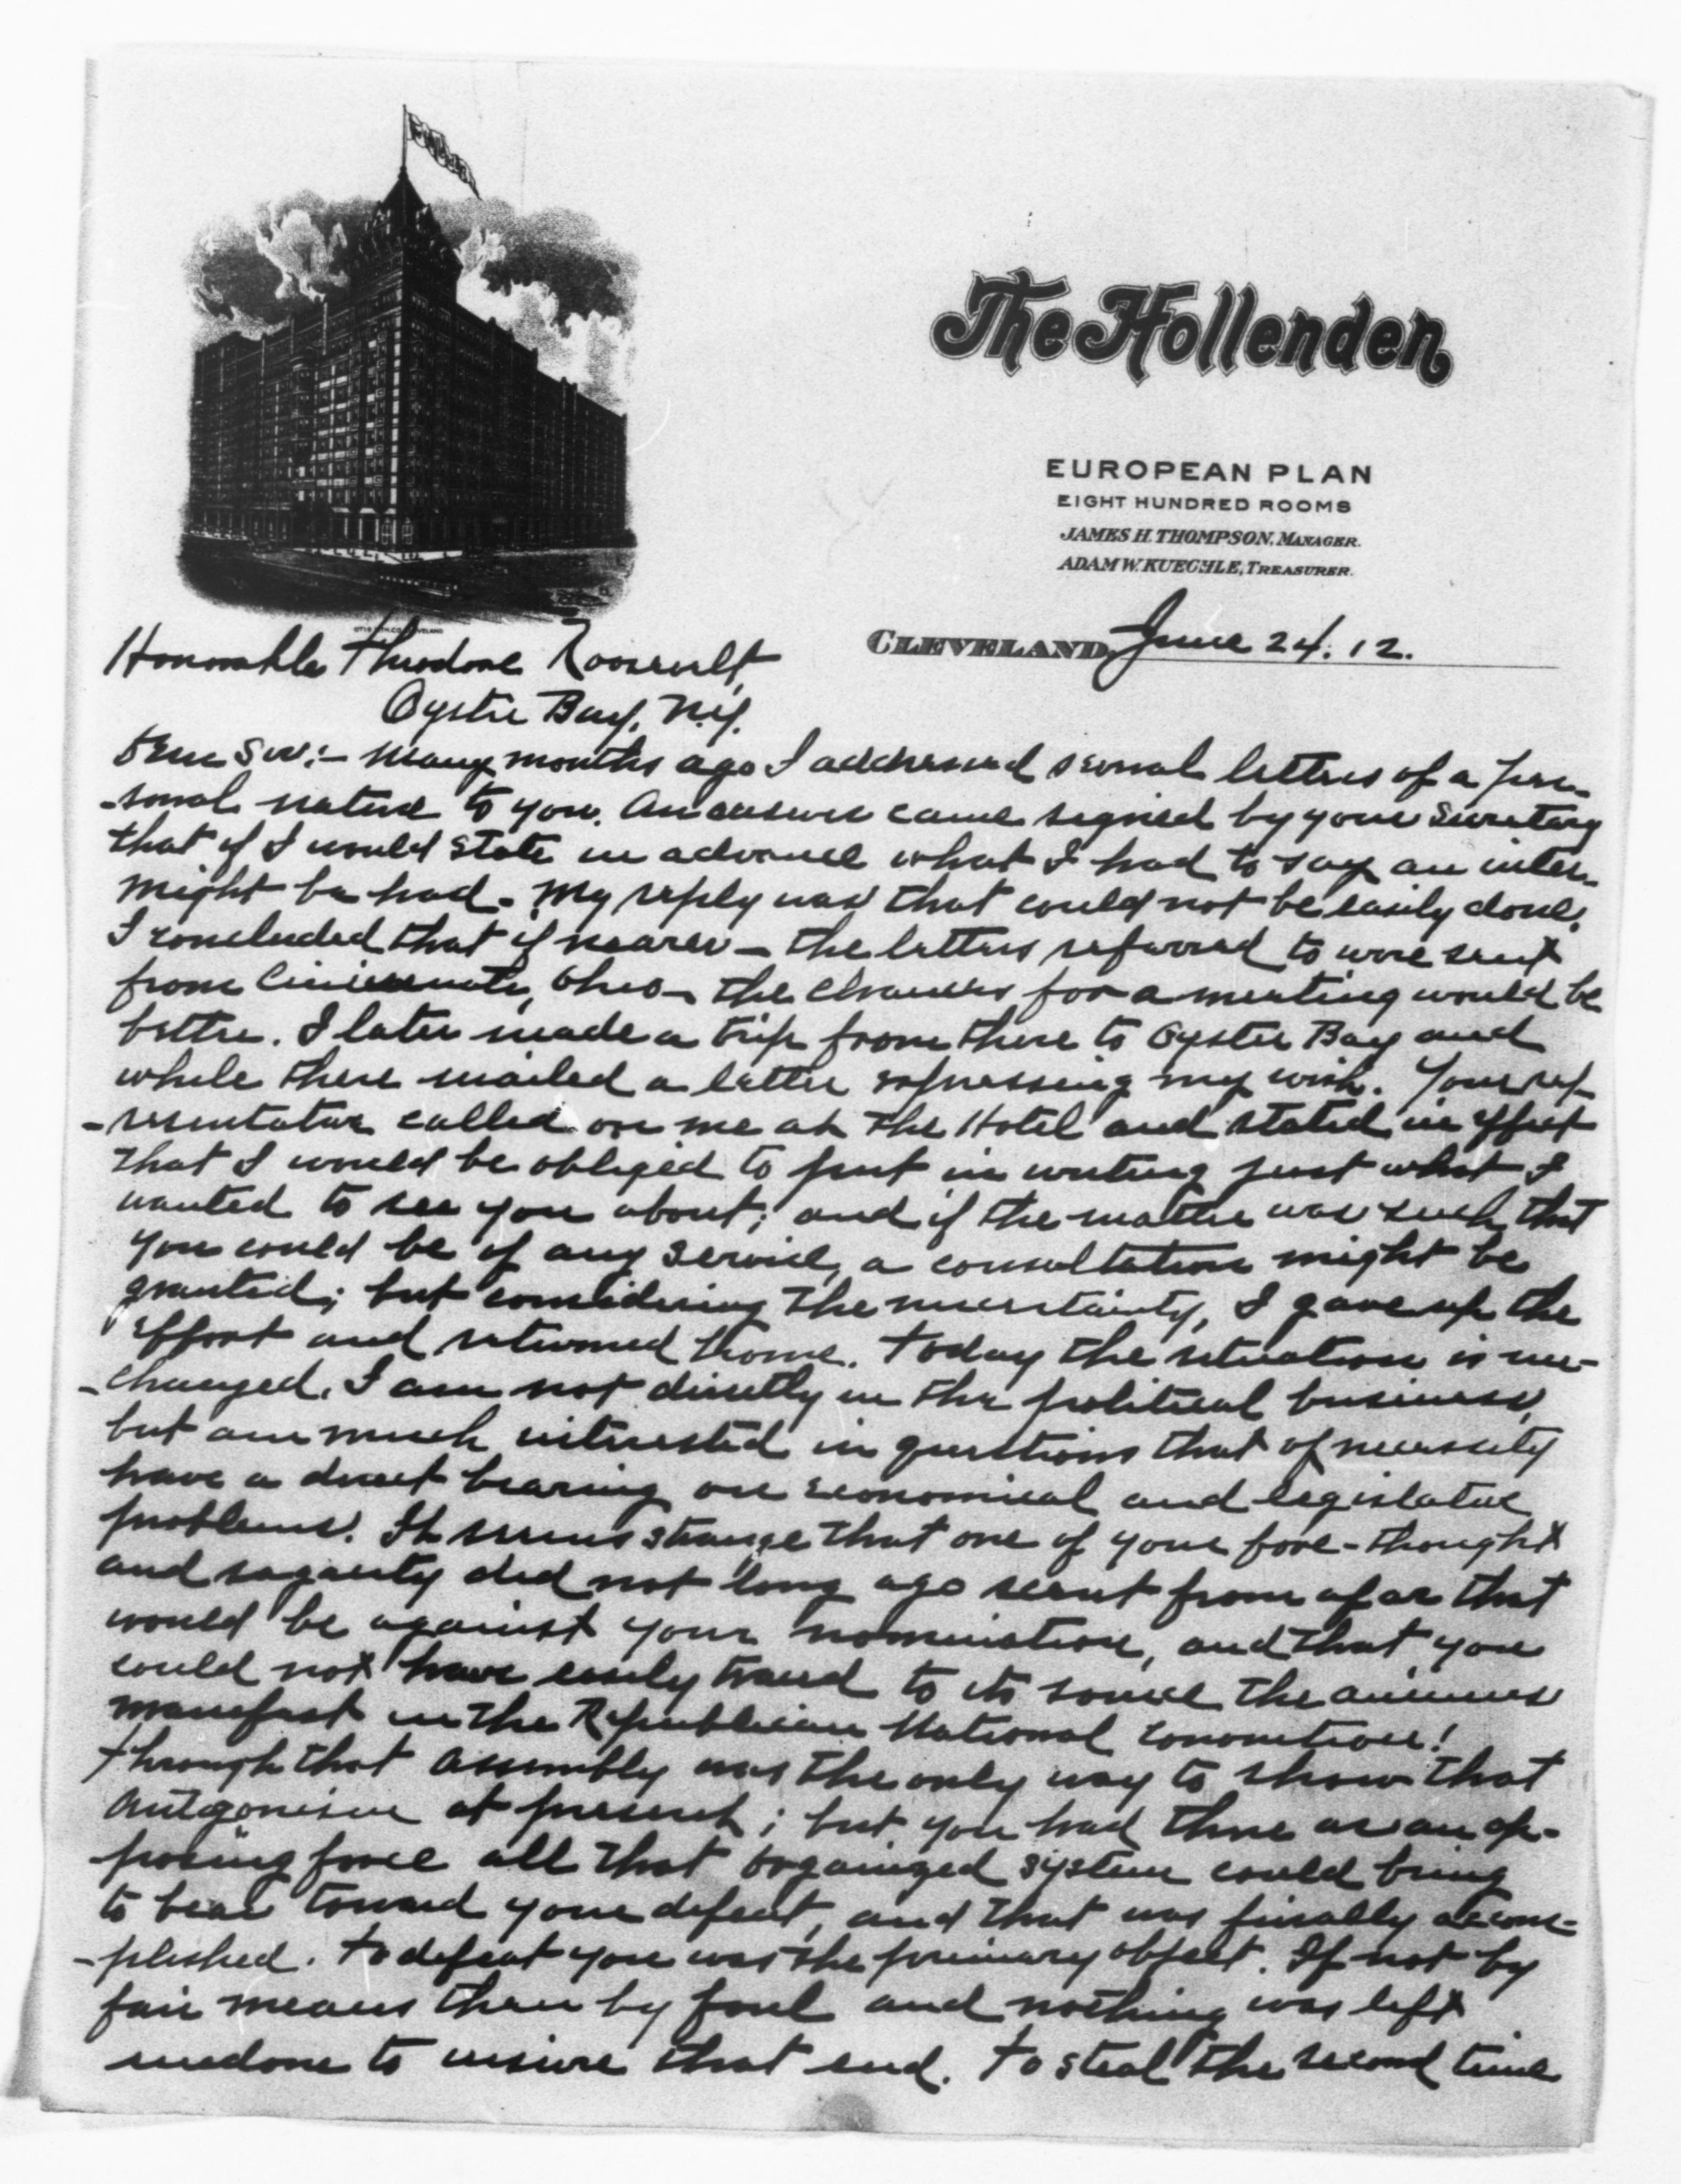 The Hollenden
EUROPEAN PLAN
EIGHT HUNDRED ROOMS
JAMES H. THOMPSON, MANAGER.
ADAM W. KUECHLE, TREASURER.
CLEVELAND, June 24. 12.
Honorable Theodore Roosevelt,
Oyster Bay, N.Y.
Dear Sir:- Many months ago I addressed several letters of a per-
-sonal nature to you. An answer came signed by your Secretary
that if I would state in advance what I had to say an inter.
might be had. My reply was that could not be easily done.
I concluded that if nearer - the letters referred to were sent
from Cincinnati, Ohio - the chances for a meeting would be
better. I later made a trip from there to Oyster Bay and
while there mailed a letter expressing my wish. Your rep-
-resentative called on me at the Hotel and stated in effect
that I would be obliged to put in writing just what I
wanted to see you about; and if the matter was such that
you could be of any service, a consultation might be
granted; but considering the uncertainty, I gave up the
effort and returned home. Today the situation is un-
-changed. I am not directly in the political business,
but am much interested in questions that of necessity
have a direct bearing on economical and legislative
problems. It seems strange that one of your fore-thought
and sagacity did not long ago scent from afar that
would be against your nomination, and that you
could not have easily traced to its source the animus
manifest in the Republican National Convention!
Through that assembly was the only way to show that
antgonism at present; but you had there as an op-
posing force all that organized system could bring
to bear toward your defeat, and that was finally accom-
-plished. To defeat you was the primary object. If not by
fair means then by foul and nothing was left
undone to insure that end. To steal the second time